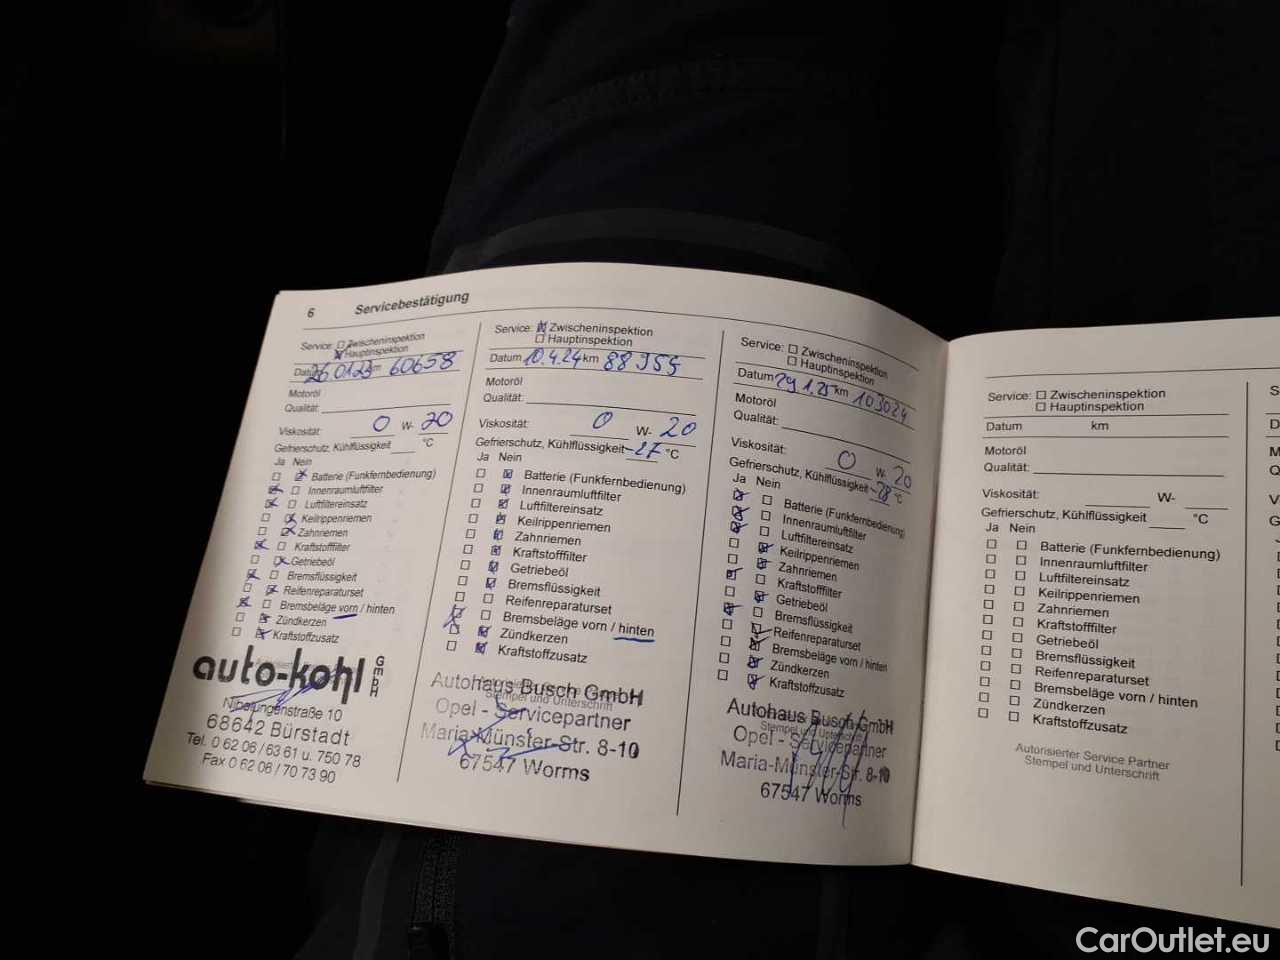 6 Servicebestätigung
Service: Zwischeninspektion
Hauptinspektion
Datum 26.01.23 km 60658
Motoröl
Qualität:
Viskosität: 0 W- 20
Gefrierschutz, Kühlflüssigkeit °C
Ja Nein
Batterie (Funkfernbedienung)
Innenraumluftfilter
Luftfiltereinsatz
Keilrippenriemen
Zahnriemen
Kraftstofffilter
Getriebeöl
Bremsflüssigkeit
Reifenreparaturset
Bremsbeläge vorn / hinten
Zündkerzen
Kraftstoffzusatz
auto-kohl GmbH
Nibelungenstraße 10
68642 Bürstadt
Tel. 0 62 06 / 63 61 u. 750 78
Fax 0 62 06 / 70 73 90
Service: Zwischeninspektion
Hauptinspektion
Datum 10.4.24 km 88955
Motoröl
Qualität:
Viskosität: 0 W- 20
Gefrierschutz, Kühlflüssigkeit -27 °C
Ja Nein
Batterie (Funkfernbedienung)
Innenraumluftfilter
Luftfiltereinsatz
Keilrippenriemen
Zahnriemen
Kraftstofffilter
Getriebeöl
Bremsflüssigkeit
Reifenreparaturset
Bremsbeläge vorn / hinten
Zündkerzen
Kraftstoffzusatz
Autohaus Busch GmbH
Stempel und Unterschrift
Opel - Servicepartner
Maria-Münster-Str. 8-10
67547 Worms
Service: Zwischeninspektion
Hauptinspektion
Datum 29.1.25 km 103024
Motoröl
Qualität:
Viskosität: 0 W- 20
Gefrierschutz, Kühlflüssigkeit -28 °C
Ja Nein
Batterie (Funkfernbedienung)
Innenraumluftfilter
Luftfiltereinsatz
Keilrippenriemen
Zahnriemen
Kraftstofffilter
Getriebeöl
Bremsflüssigkeit
Reifenreparaturset
Bremsbeläge vorn / hinten
Zündkerzen
Kraftstoffzusatz
Autohaus Busch GmbH
Stempel und Unterschrift
Opel - Servicepartner
Maria-Münster-Str. 8-10
67547 Worms
Service: Zwischeninspektion
Hauptinspektion
Datum km
Motoröl
Qualität:
Viskosität: W-
Gefrierschutz, Kühlflüssigkeit °C
Ja Nein
Batterie (Funkfernbedienung)
Innenraumluftfilter
Luftfiltereinsatz
Keilrippenriemen
Zahnriemen
Kraftstofffilter
Getriebeöl
Bremsflüssigkeit
Reifenreparaturset
Bremsbeläge vorn / hinten
Zündkerzen
Kraftstoffzusatz
Autorisierter Service Partner
Stempel und Unterschrift
CarOutlet.eu